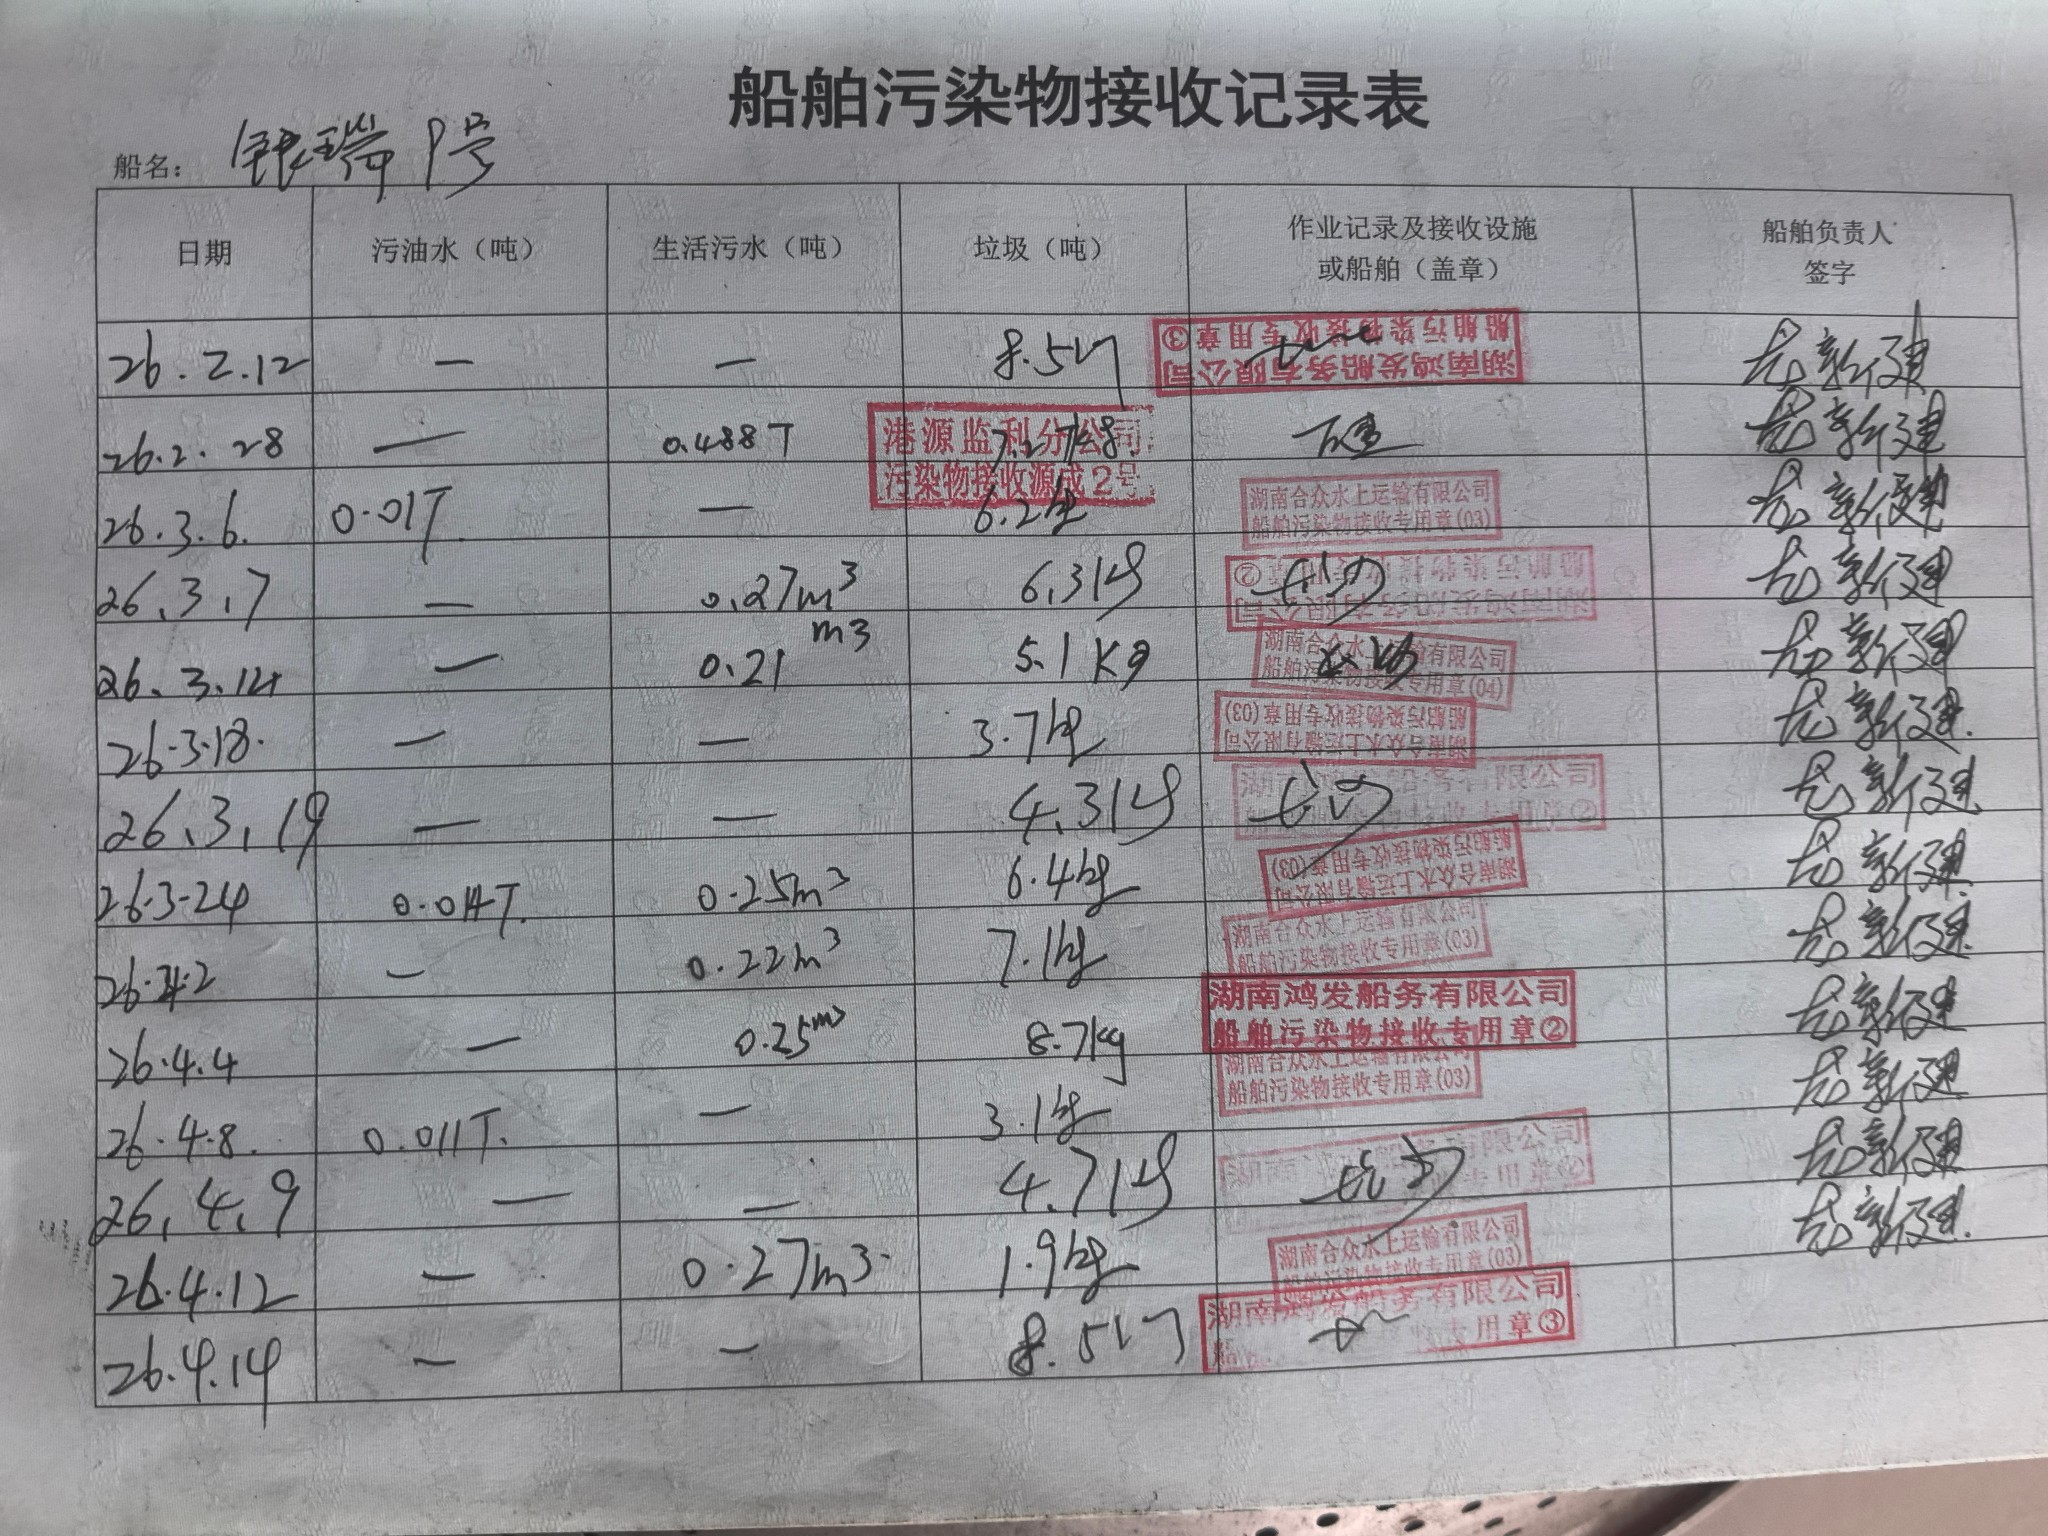 船舶污染物接收记录表
船名： 银瑞1号
日期 污油水（吨） 生活污水（吨） 垃圾（吨） 作业记录及接收设施或船舶（盖章） 船舶负责人签字
26.2.12 — — 8.5 湖南鸿发船务有限公司 船舶污染物接收专用章③ 尤新建
26.2.28 — 0.488T 7.27kg 港源监利分公司 污染物接收源成2号 尤新建
26.3.6. 0.01T. — 6.2kg 湖南合众水上运输有限公司 船舶污染物接收专用章(03) 尤新建
26.3.7 — 0.27m3 6.3kg 湖南鸿发船务有限公司 船舶污染物接收专用章② 尤新建
26.3.14 — 0.21 m3 5.1Kg 湖南合众水上运输有限公司 船舶污染物接收专用章(04) 尤新建
26.3.18. — — 3.7kg 湖南合众水上运输有限公司 船舶污染物接收专用章(03) 尤新建.
26.3.19 — — 4.3kg 湖南鸿发船务有限公司 船舶污染物接收专用章② 尤新建
26.3.24 0.014T. 0.25m3 6.4kg 湖南合众水上运输有限公司 船舶污染物接收专用章(03) 尤新建.
26.4.2 — 0.22m3 7.1kg 湖南合众水上运输有限公司 船舶污染物接收专用章(03) 尤新建.
26.4.4 — 0.25m3 8.7kg 湖南鸿发船务有限公司 船舶污染物接收专用章② 尤新建
26.4.8. 0.011T. — 3.1kg 湖南合众水上运输有限公司 船舶污染物接收专用章(03) 尤新建
26.4.9 — — 4.7kg 船务有限公司 专用章② 尤新建
26.4.12 — 0.27m3. 1.9kg 湖南合众水上运输有限公司 船舶污染物接收专用章(03) 尤新建.
26.4.14 — — 8.5 湖南鸿发船务有限公司 船 收专用章③